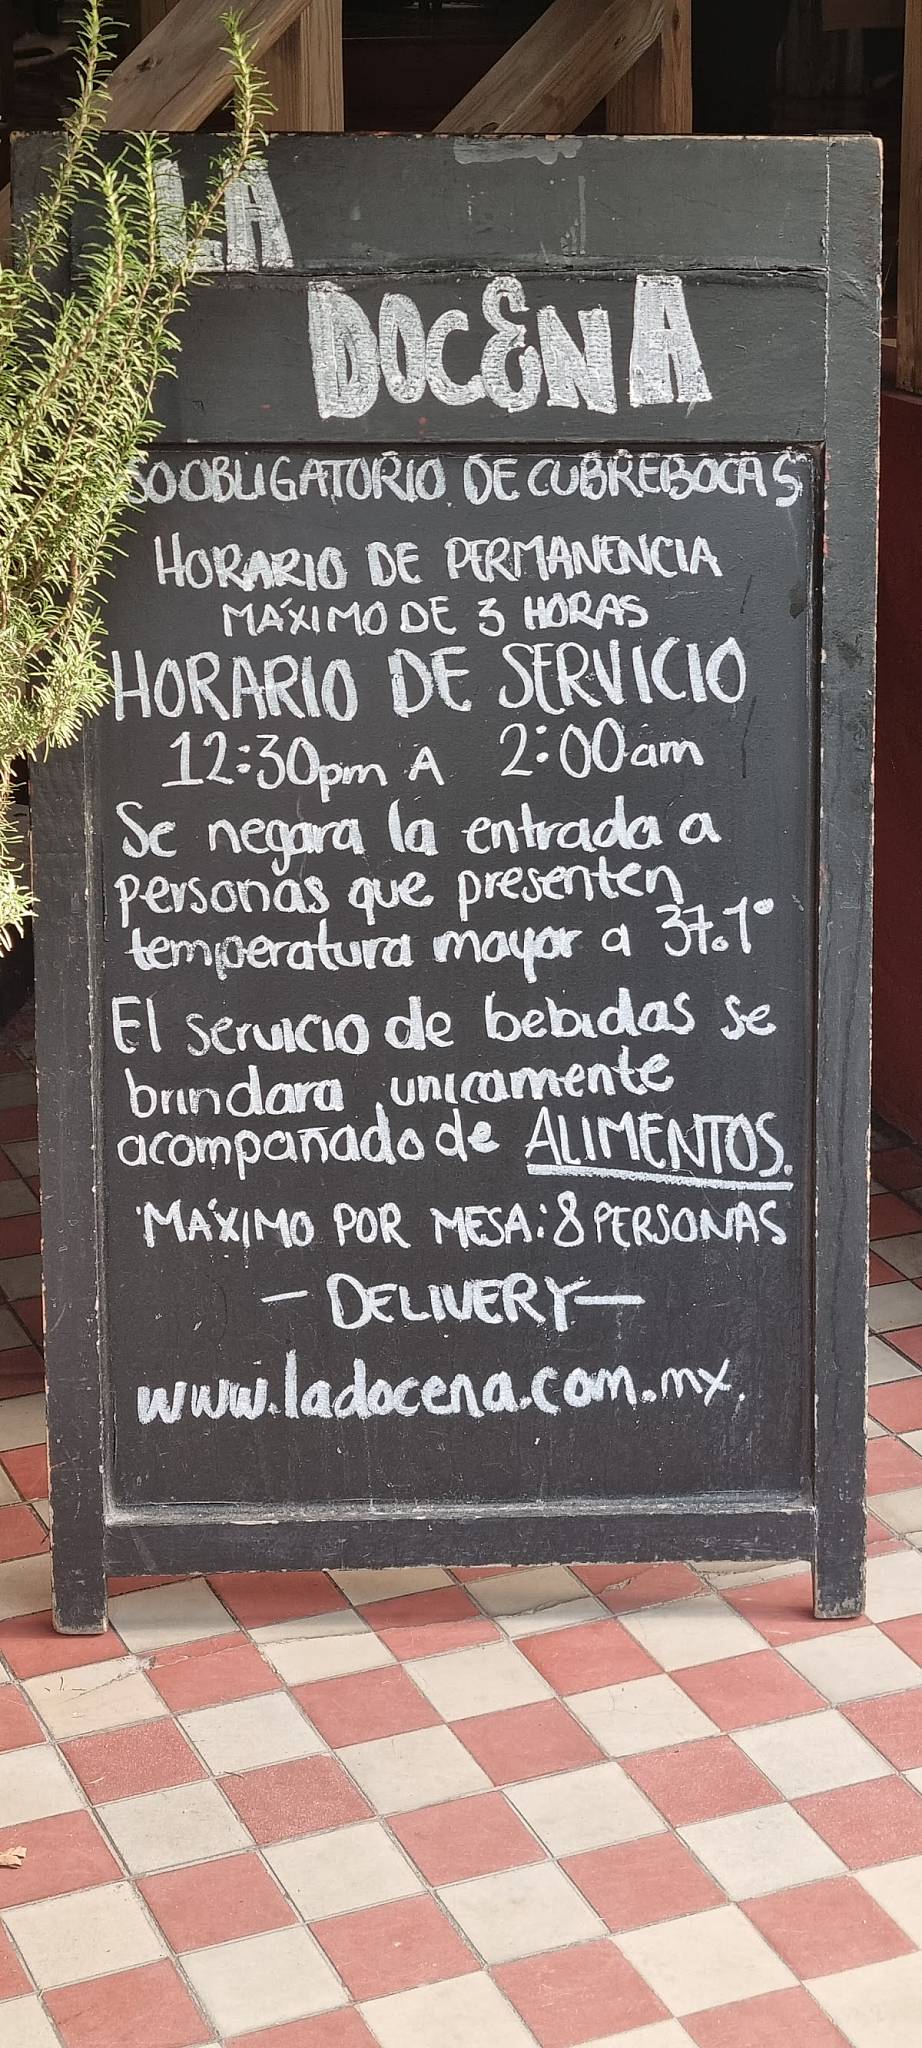 LA
DOCENA
OBLIGATORIO DE CUBREBOCAS
HORARIO DE PERMANENCIA
MÁXIMO DE 3 HORAS
HORARIO DE SERVICIO
12:30pm A 2:00am
Se negara la entrada a
personas que presenten
temperatura mayor a 37.1°
El servicio de bebidas se
brindara unicamente
acompañado de ALIMENTOS.
MÁXIMO POR MESA: 8 PERSONAS
- DELIVERY -
www.ladocena.com.mx.